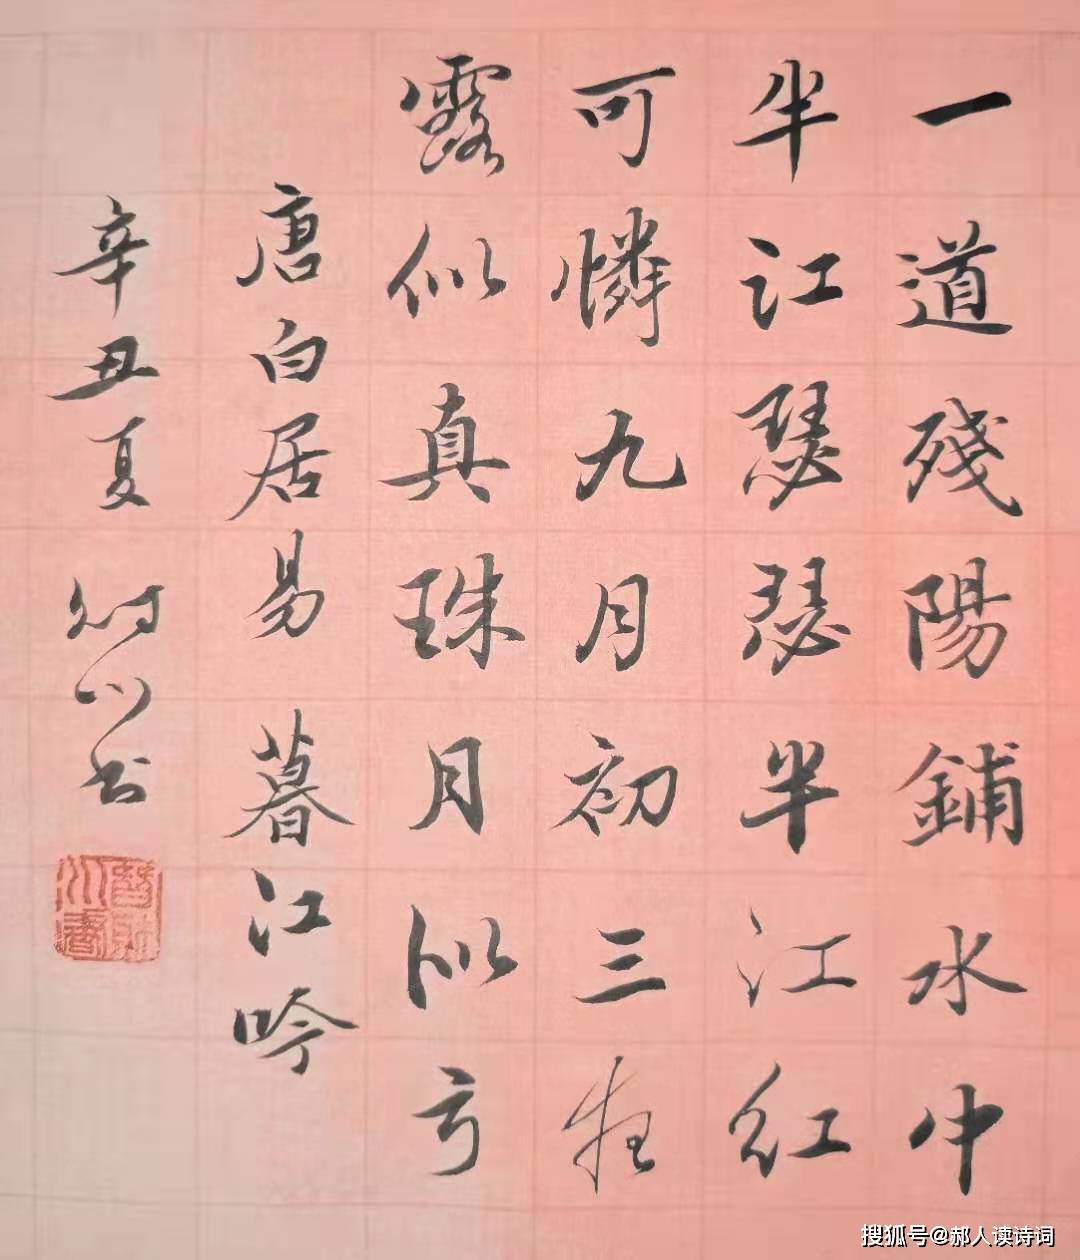 一道殘陽鋪水中
半江瑟瑟半江紅
可憐九月初三夜
露似真珠月似弓
唐白居易暮江吟
辛丑夏川书
搜狐号@郝人读诗词